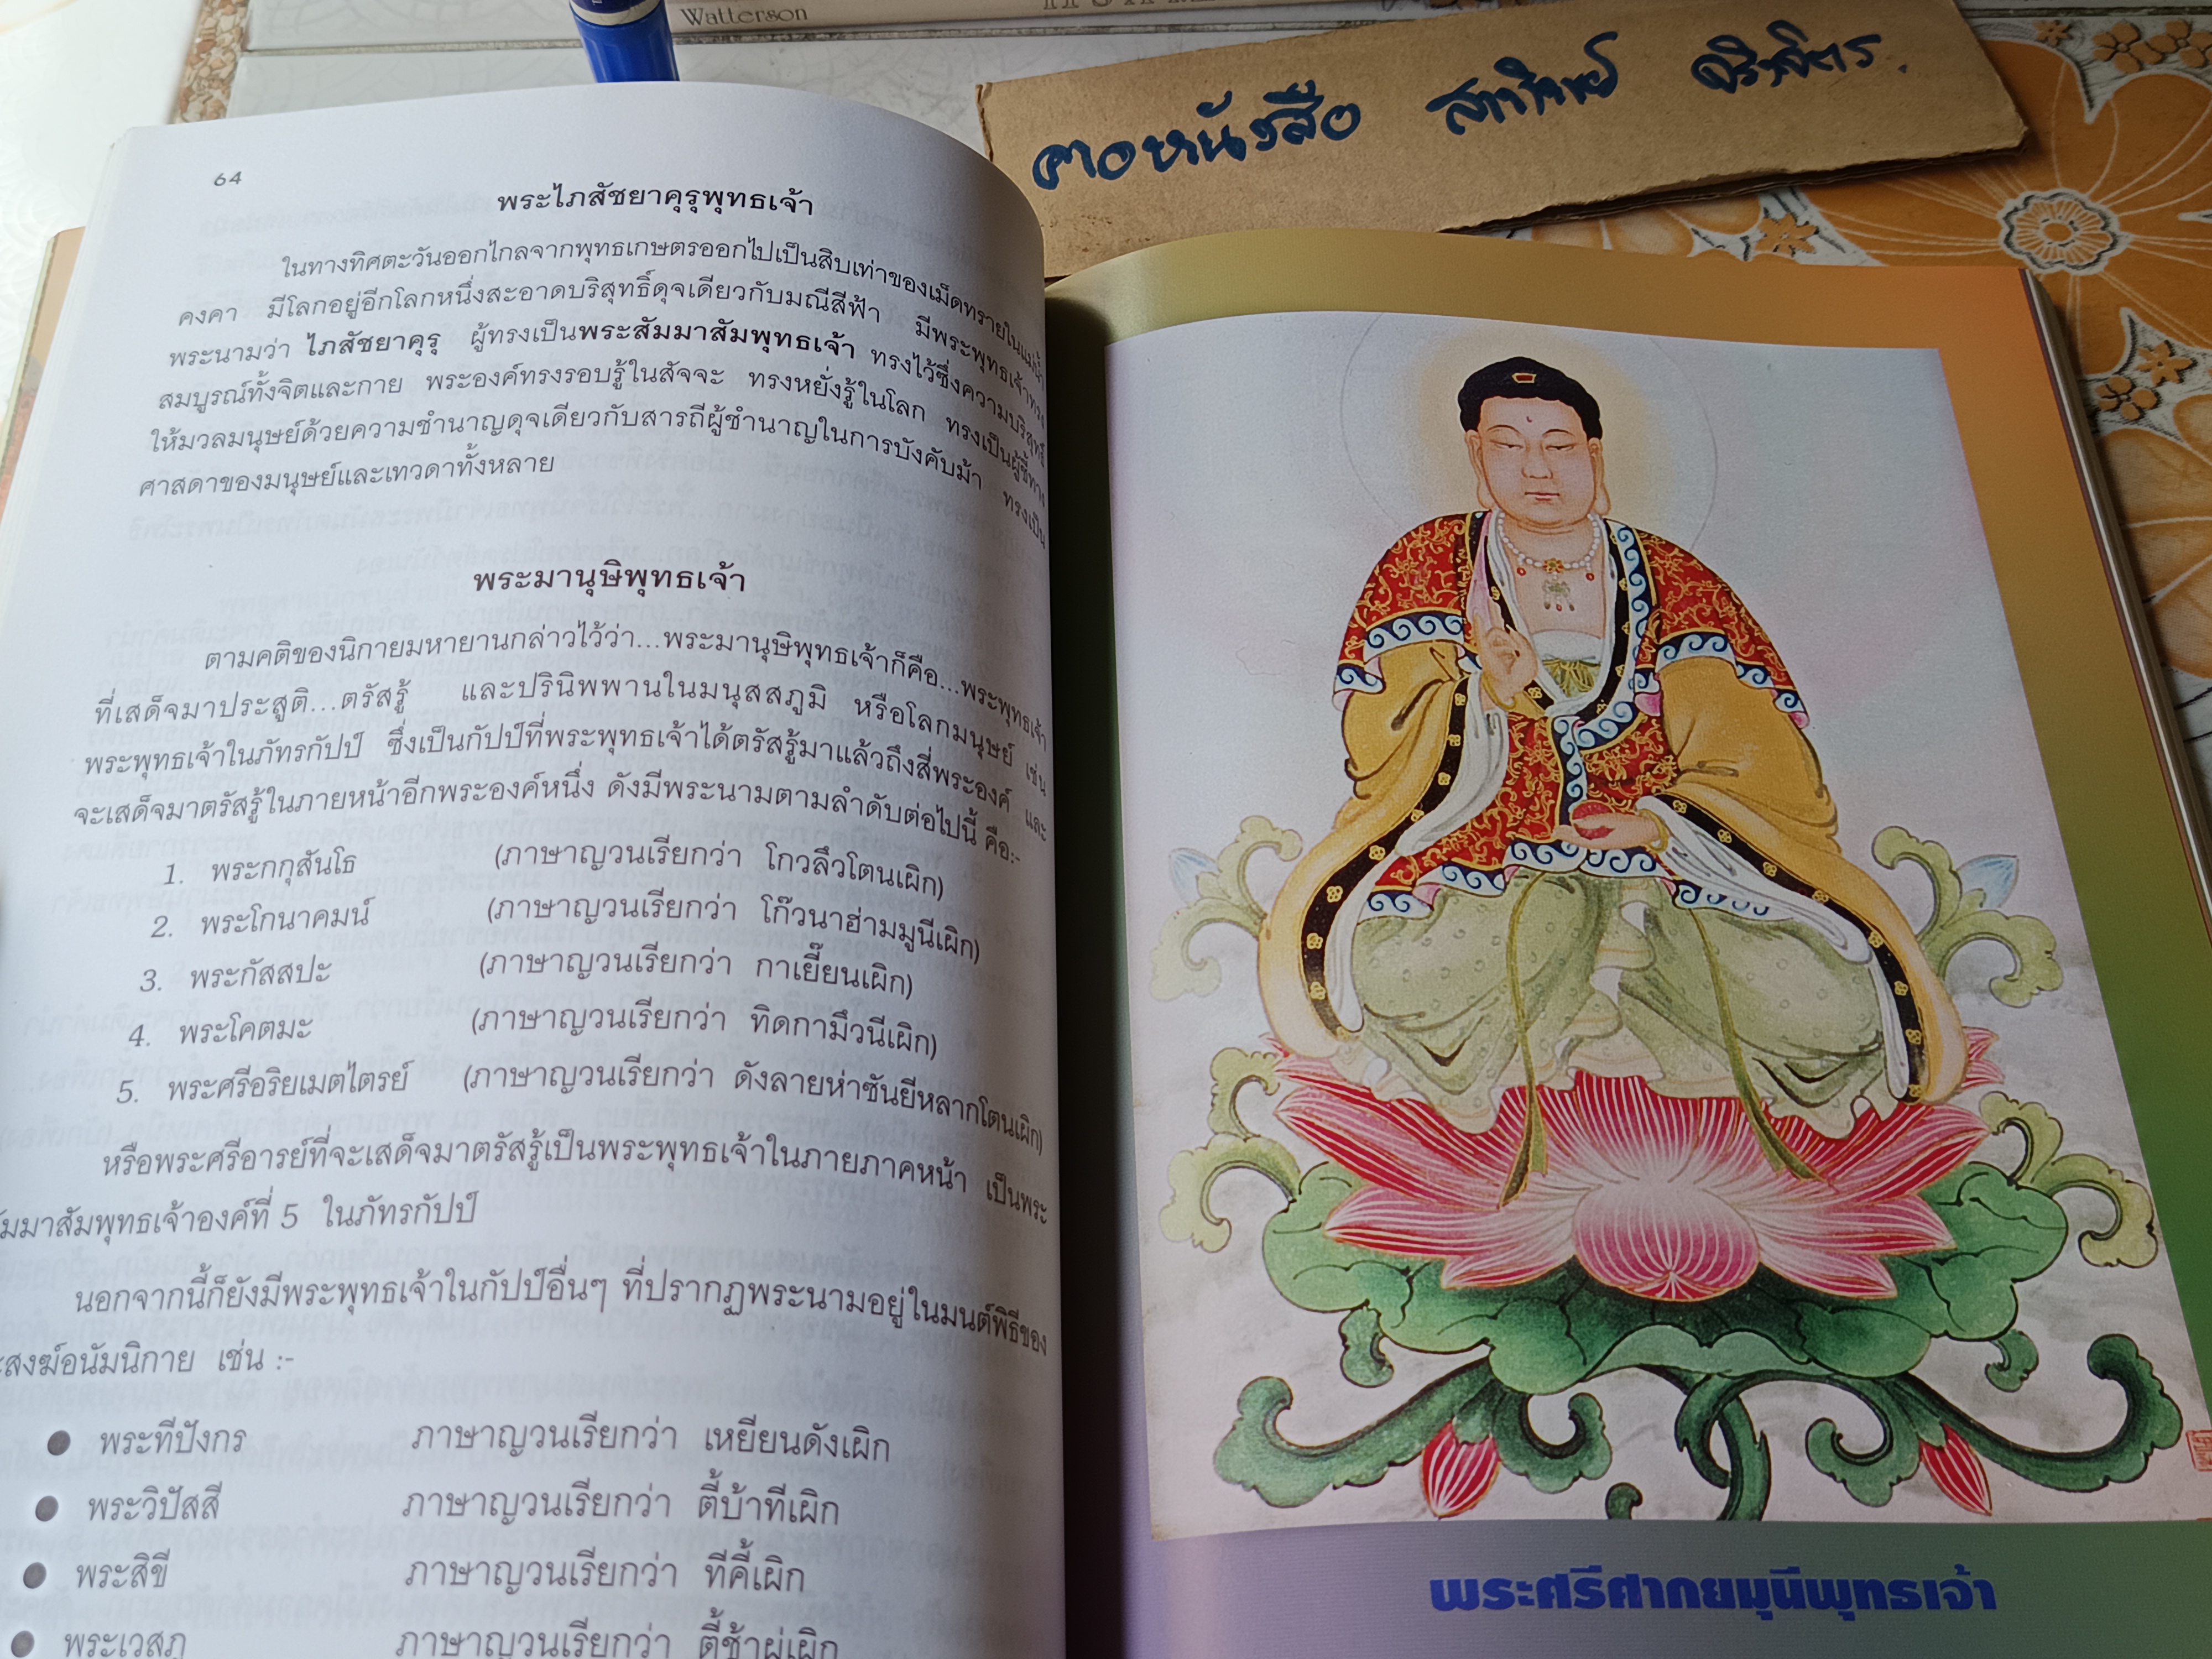 Watterson
คอหนังสือ
64
พระไภสัชยาคุรุพุทธเจ้า
ในทางทิศตะวันออกไกลจากพุทธเกษตรออกไปเป็นสิบเท่าของเม็ดทรายในแม่น้ำ
คงคา มีโลกอยู่อีกโลกหนึ่งสะอาดบริสุทธิ์ดุจเดียวกับมณีสีฟ้า มีพระพุทธเจ้าทรง
พระนามว่า ไภสัชยาคุรุ ผู้ทรงเป็นพระสัมมาสัมพุทธเจ้า ทรงไว้ซึ่งความบริสุทธิ์
สมบูรณ์ทั้งจิตและกาย พระองค์ทรงรอบรู้ในสัจจะ ทรงหยั่งรู้ในโลก ทรงเป็นผู้ชี้ทาง
ให้มวลมนุษย์ด้วยความชำนาญดุจเดียวกับสารถีผู้ชำนาญในการบังคับม้า ทรงเป็น
ศาสดาของมนุษย์และเทวดาทั้งหลาย
พระมานุษิพุทธเจ้า
ตามคติของนิกายมหายานกล่าวไว้ว่า...พระมานุษิพุทธเจ้าก็คือ...พระพุทธเจ้า
ที่เสด็จมาประสูติ...ตรัสรู้ และปรินิพพานในมนุสสภูมิ หรือโลกมนุษย์ เช่น
พระพุทธเจ้าในภัทรกัปป์ ซึ่งเป็นกัปป์ที่พระพุทธเจ้าได้ตรัสรู้มาแล้วถึงสี่พระองค์ และ
จะเสด็จมาตรัสรู้ในภายหน้าอีกพระองค์หนึ่ง ดังมีพระนามตามลำดับต่อไปนี้ คือ:-
1. พระกกุสันโธ (ภาษาญวนเรียกว่า โกวลึวโตนเผิก)
2. พระโกนาคมน์ (ภาษาญวนเรียกว่า โก๊วนาฮ่ามมูนีเผิก)
3. พระกัสสปะ (ภาษาญวนเรียกว่า กาเยี๊ยนเผิก)
4. พระโคตมะ (ภาษาญวนเรียกว่า ทิดกามึวนีเผิก)
5. พระศรีอริยเมตไตรย์ (ภาษาญวนเรียกว่า ดังลายห่าซันยีหลากโตนเผิก)
หรือพระศรีอารย์ที่จะเสด็จมาตรัสรู้เป็นพระพุทธเจ้าในภายภาคหน้า เป็นพระ
ัมมาสัมพุทธเจ้าองค์ที่ 5 ในภัทรกัปป์
นอกจากนี้ก็ยังมีพระพุทธเจ้าในกัปป์อื่นๆ ที่ปรากฏพระนามอยู่ในมนต์พิธีของ
ะสงฆ์อนัมนิกาย เช่น :-
● พระทีปังกร ภาษาญวนเรียกว่า เหยียนดังเผิก
● พระวิปัสสี ภาษาญวนเรียกว่า ตี้บ้าทีเผิก
● พระสิขี ภาษาญวนเรียกว่า ทีคี้เผิก
● พระเวสภู ภาษาญวนเรียกว่า ตี้ช้าผู่เผิก
พระศรีศากยมุนีพุทธเจ้า